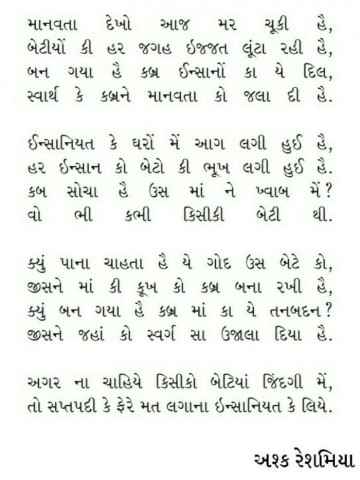 માનવતા દેખો આજ મર ચૂકી હૈ,
બેટીયોં કી હર જગહ ઇજજત લૂંટા રહી હૈ,
બન ગયા હૈ કબ્ર ઈન્સાનોં કા યે દિલ,
સ્વાર્થ કે કબ્રને માનવતા કો જલા દી હૈ.
ઈન્સાનિયત કે ઘરોં મેં આગ લગી હુઈ હૈ,
હર ઇન્સાન કો બેટો કી ભૂખ લગી હુઈ હૈ.
કબ સોચા હૈ ઉસ માં ને ખ્વાબ મેં?
વો ભી કભી કિસીકી બેટી થી.
ક્યું પાના ચાહતા હૈ યે ગોદ ઉસ બેટે કો,
જીસને માં કી કૂખ કો કબ્ર બના રખી હૈ,
ક્યું બન ગયા હૈ કબ્ર માં કા યે તનબદન?
જીસને જહાં કો સ્વર્ગ સા ઉજાલા દિયા હૈ.
અગર ના ચાહિયે કિસીકો બેટિયાં જિંદગી મેં,
તો સપ્તપદી કે ફેરે મત લગાના ઇન્સાનિયત કે લિયે.
અશ્ક રેશમિયા